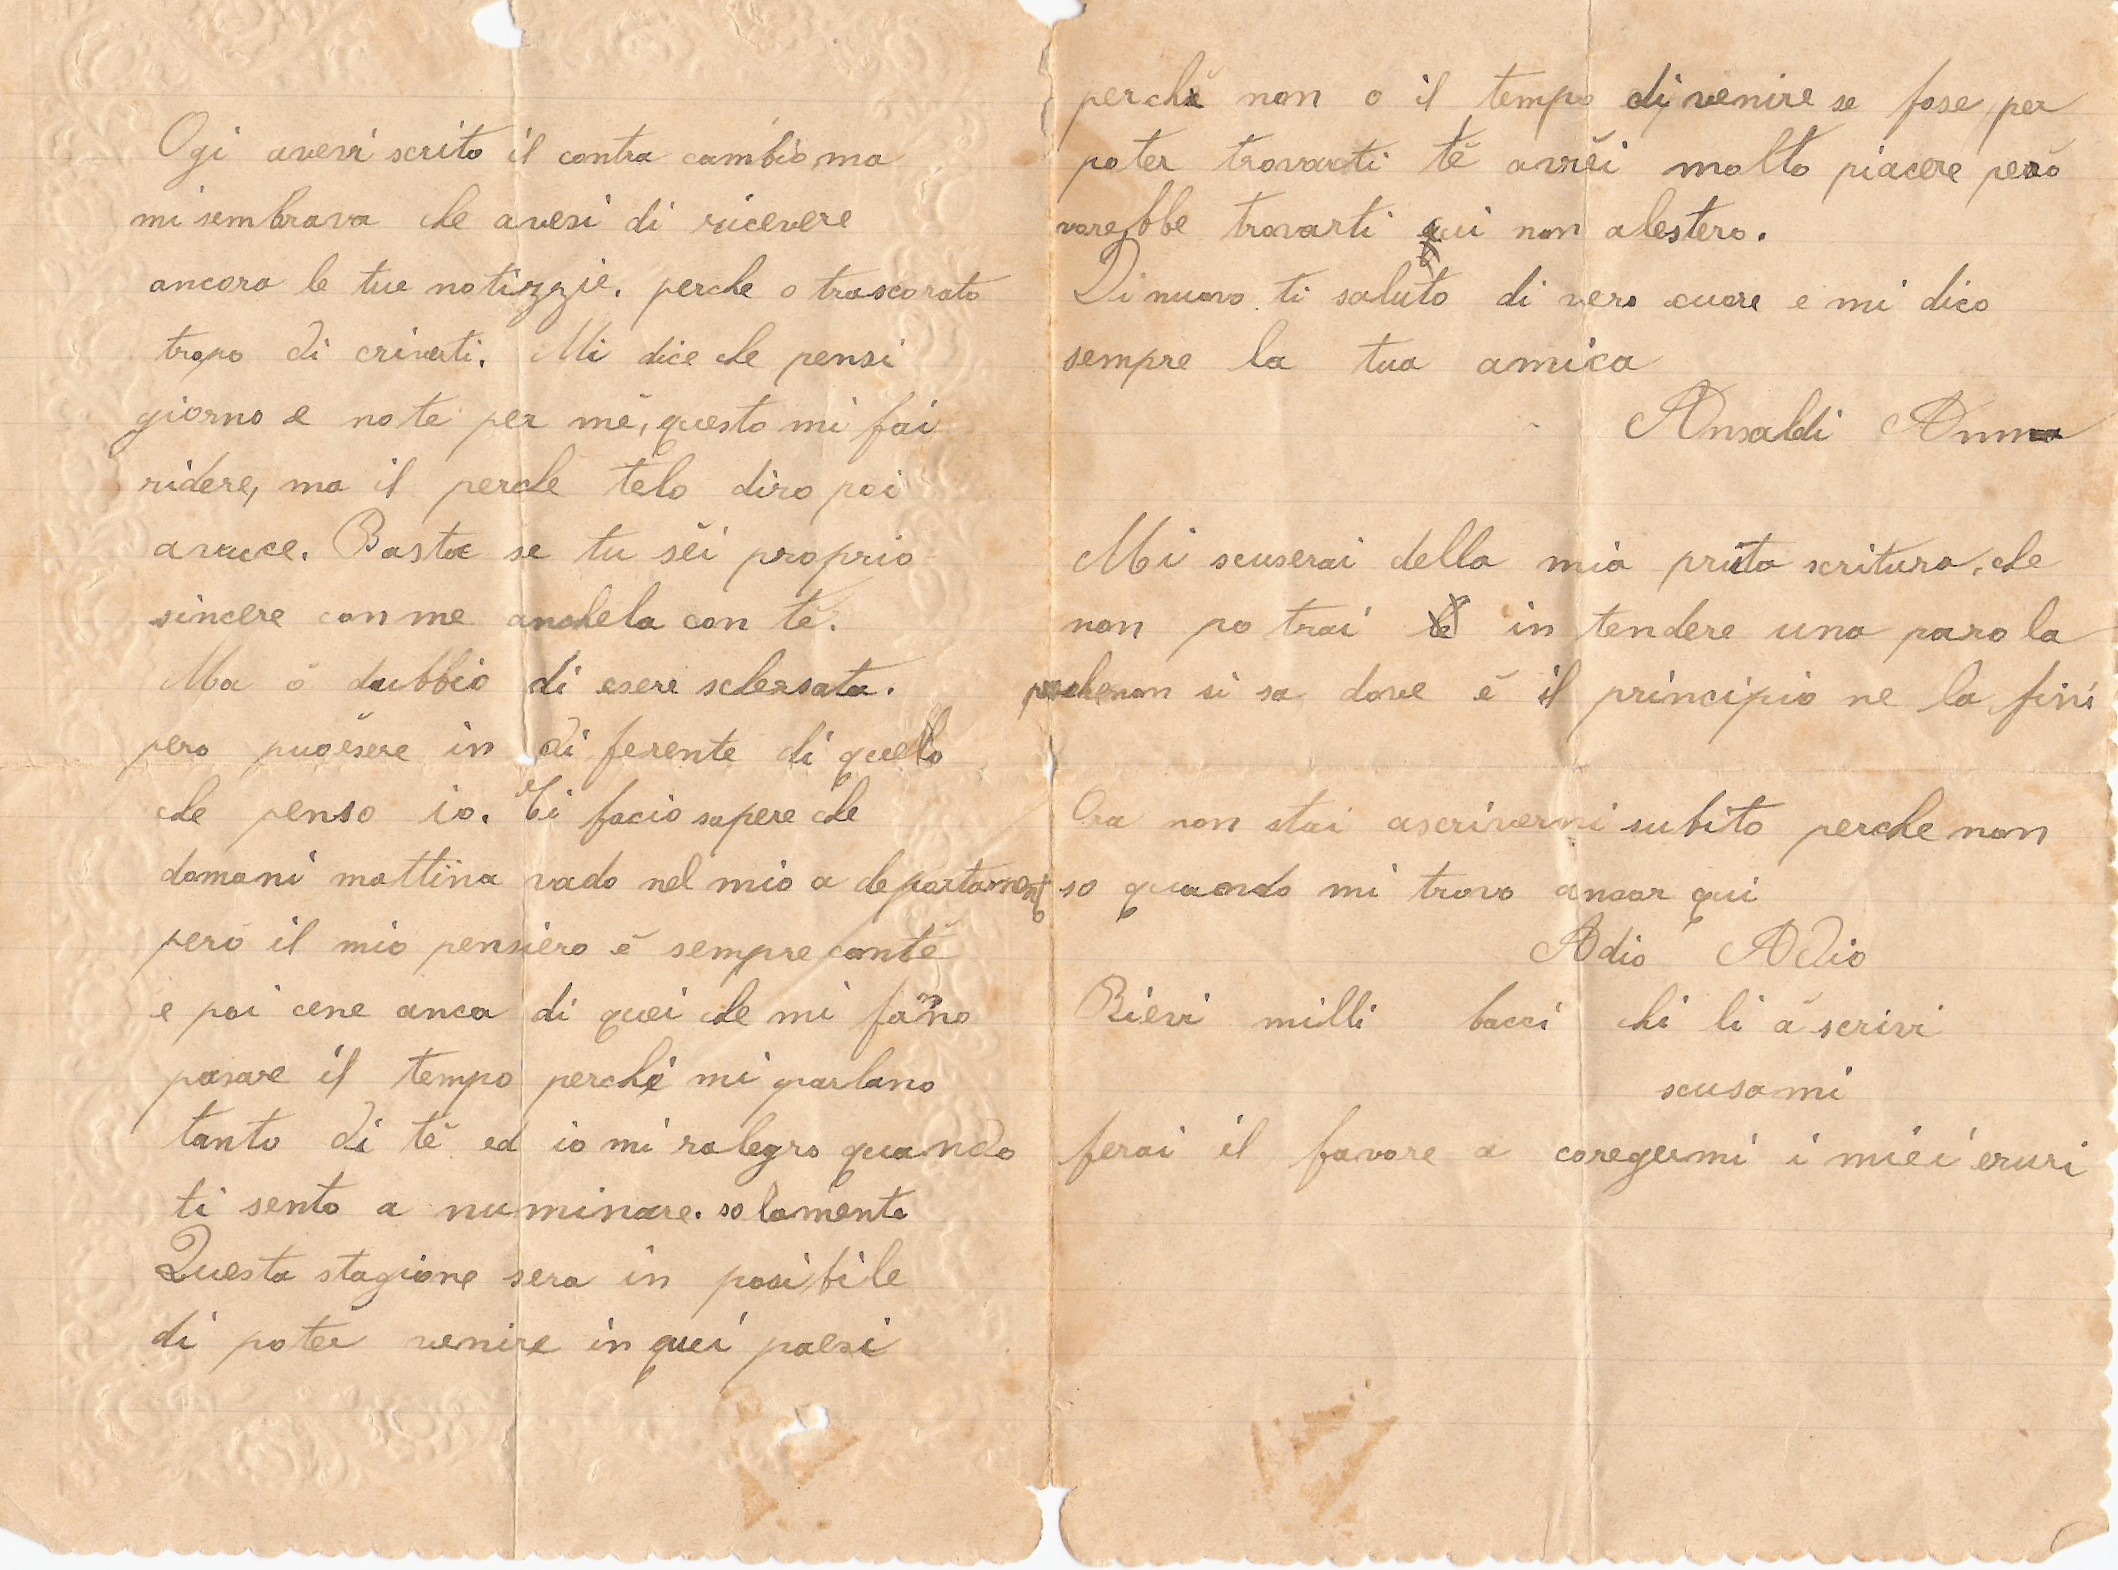 Ogi averi scrito il contra cambio ma
mi sembrava che avesi di ricevere
ancora le tue notizzie. perche o trascorato
tropo di criverti. Mi dice che pensi
giorno e note per mě, questo mi fai
ridere, ma il perche telo diro poi
avuce. Basta se tu sěi proprio
sincere con me anchela con tě.
Ma ǒ dubbio di esere schersata.
pero puoěsere in di ferente di quello
che penso io. Ti facio sapere che
domani mattina vado nel mio a departamento
però il mio pensiero ě sempre contě
e poi cene anca di quei che mi fanno
pasare il tempo perché mi parlano
tanto di tě ed io mi ralegro quando
ti sento a numinare. solamente
Questa stagione sera in posibile
di poter venire in quei paesi
perchě non o il tempo di venire se fose per
poter trovarti tě avrěi molto piacere però
varebbe trovarti qui non alestero.
Di nuovo ti saluto di vero cuore e mi dico
sempre la tua amica
Ansaldi Anna
Mi scuserai della mia pruta scritura, che
non po trai in tendere una paro la
perche non si sa dove ě il principio ne la fini
Ora non stai ascriverni subito perche non
so quando mi trovo ancor qui
Adio Adio
Rievi milli bacci chi li ǎ scrivi
scusami
ferai il favore a coregermi i miěi eruri